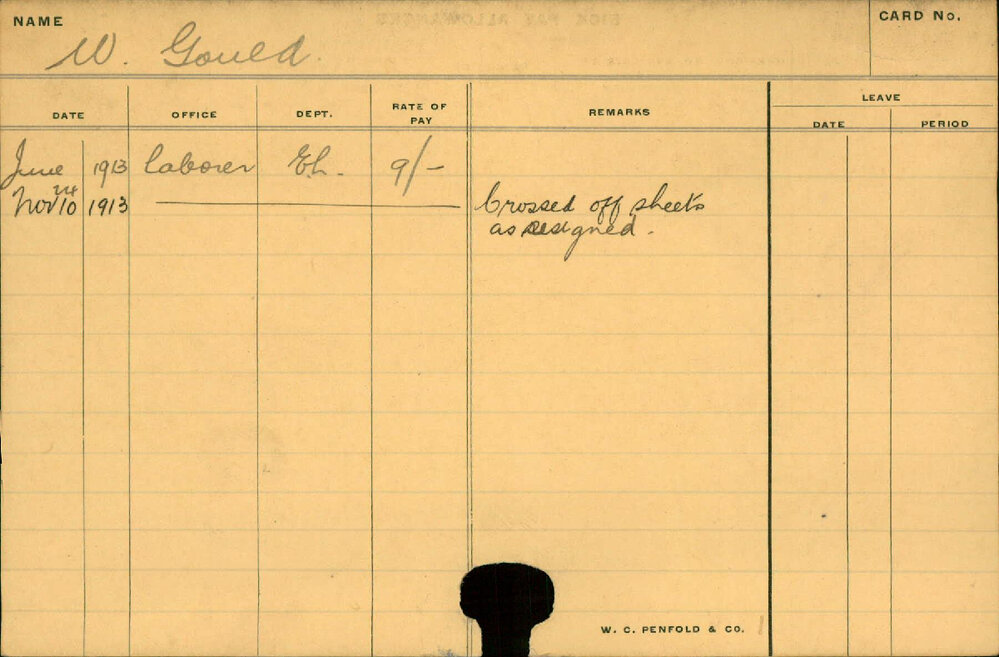 NAME
W. Gould.
CARD No.
DATE OFFICE DEPT. RATE OF PAY REMARKS LEAVE
DATE PERIOD
June 1913 laborer E.L. 9/-
Nov 10 1913 Crossed off sheets
as resigned.
W. C. PENFOLD & CO.